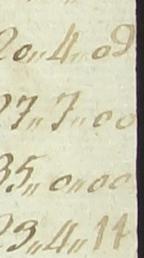 20,,4,,09
27,,7,,00
35,,0,,00
23,,4,,11